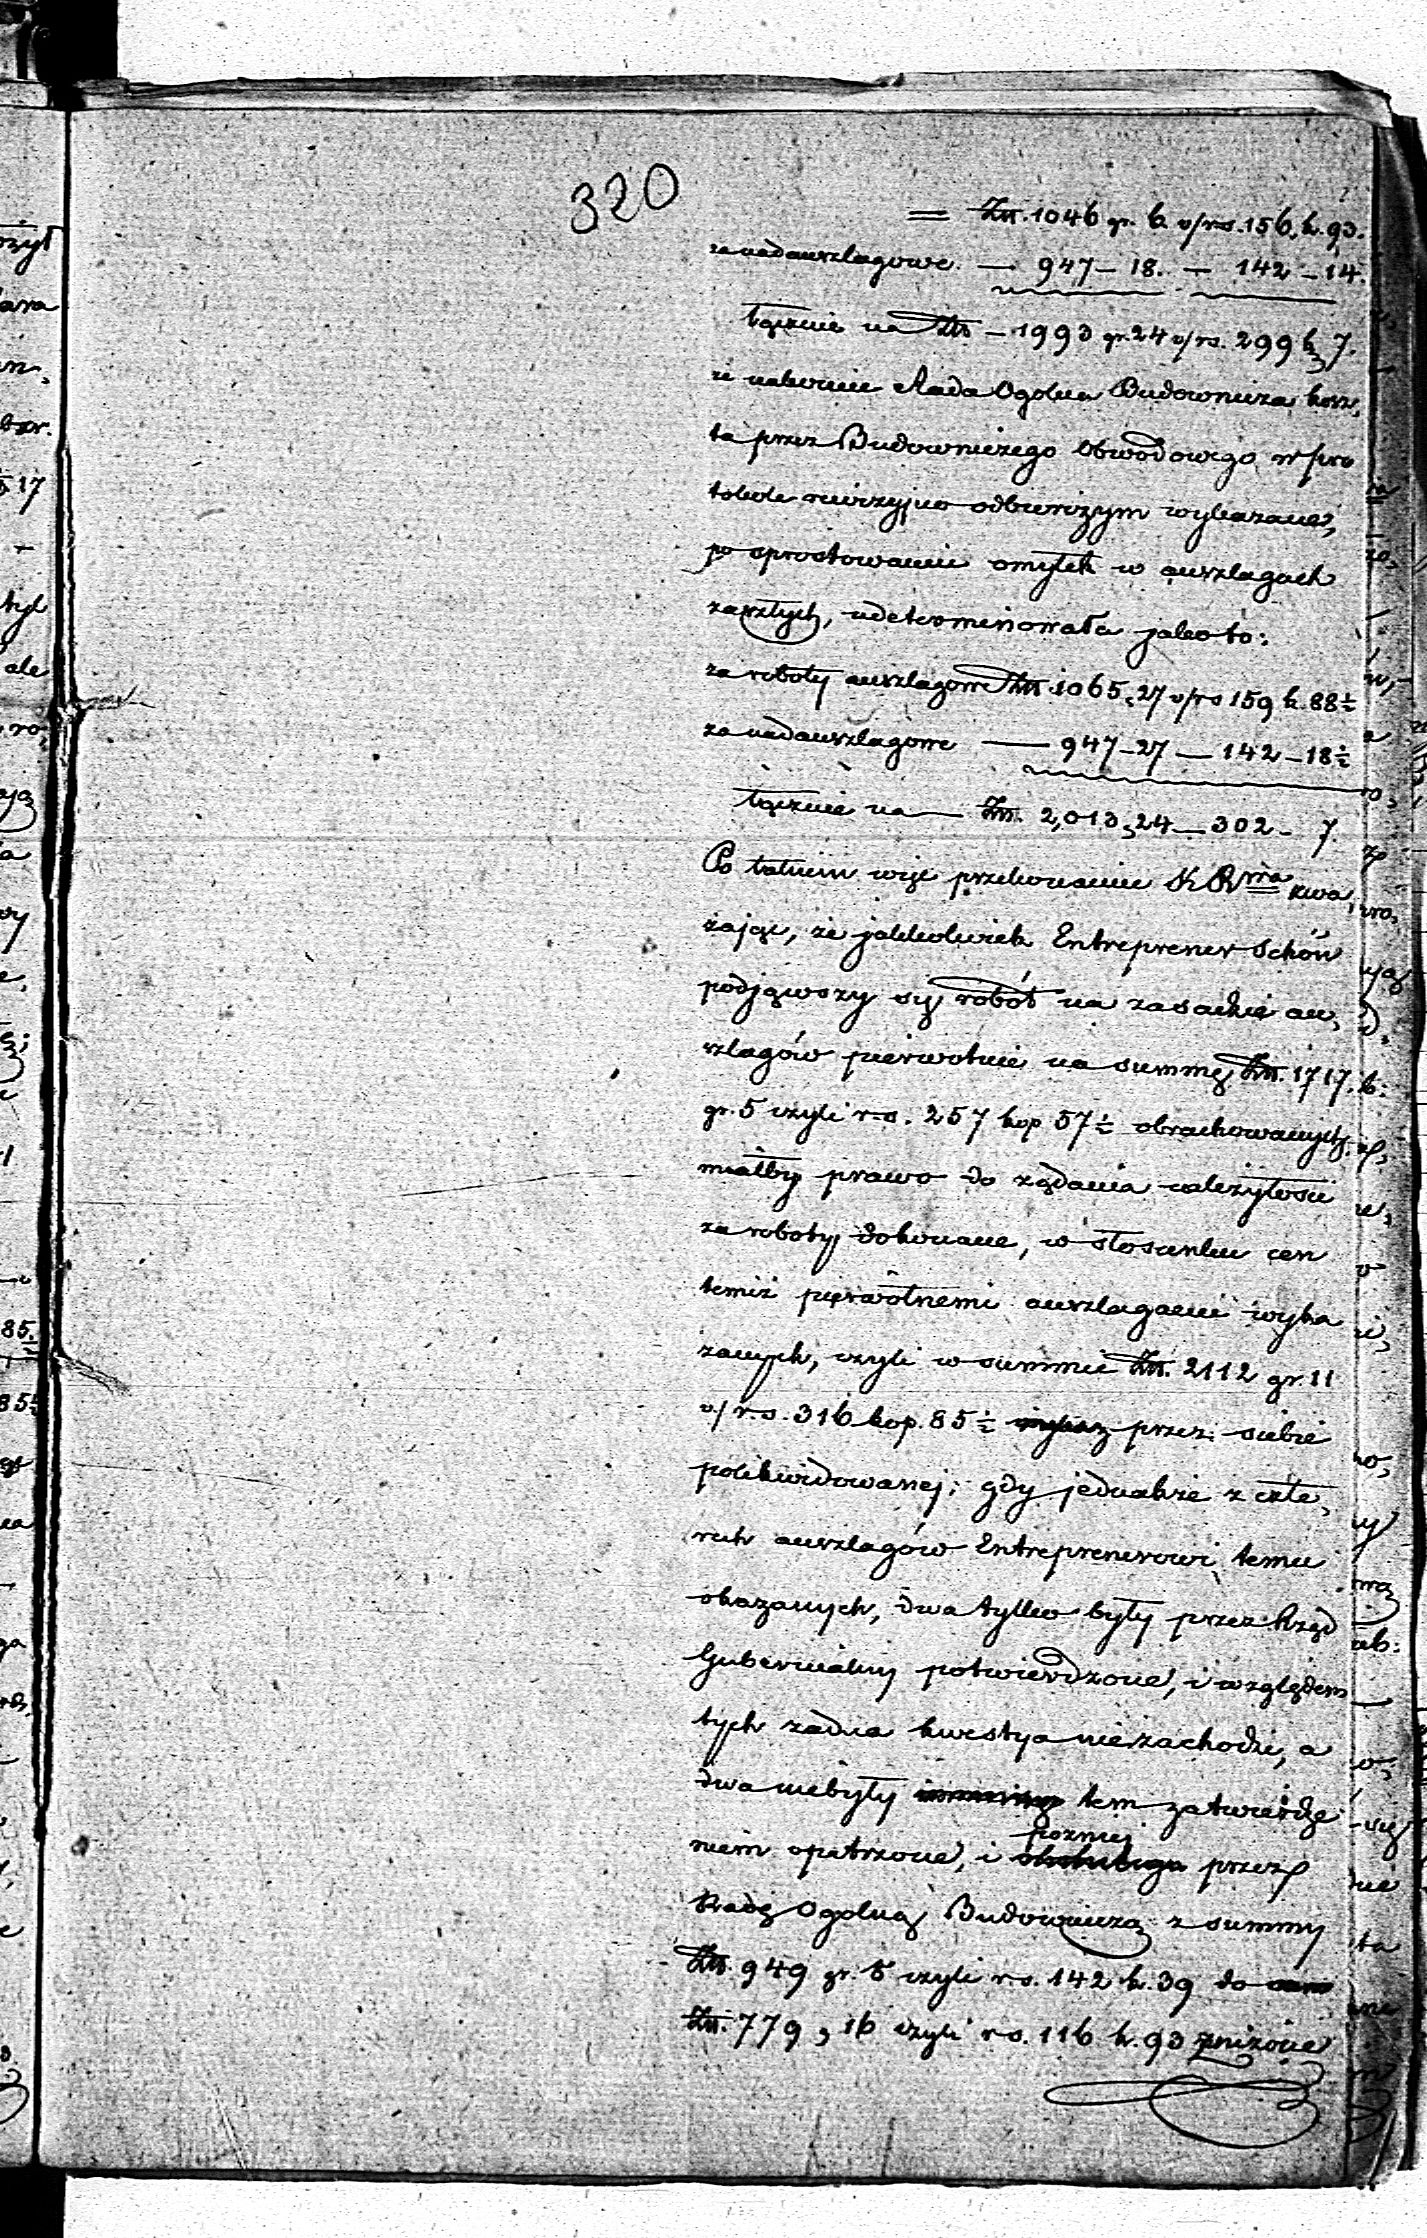 320
= Złt. 1046 gr. 6 v/rs. 156. k. 93.
za nadauszlagowe — 947 — 18. — 142 — 14.
łącznie na Złt — 1993 gr. 24 v/rs. 299 k 7.
że nakoniec Rada Ogólna Budownicza kosz,
ta przez Budowniczego Obwodowego w pro
tokole rewizyjno odbiorczym wykazane,
po sprostowaniu omyłek w auszlagach
zaszłych, udeterminowała jako to:
za roboty auszlagowe Złt. 1065, 27 v/rs 159 k. 88½
za nadauszlagowe — 947 – 27 — 142 – 18½
łącznie na — Złt. 2,013, 24 — 302 – 7.
Po takiem więc przekonaniu się K. R. zwa,
żając, że jakkolwiek Entreprener Schön
podjąwszy się robót na zasadzie au,
szlagów pierwotnie na summę Złt. 1717.
gr. 5 czyli rs. 257 kop 57½ obrachowanych,
miałby prawo do żądania należytości
za roboty dokonane, w stosunku cen
temiż pierwotnemi auszlagami wyka
zanych, czyli w summie Złt. 2112 gr. 11
v/ r.s. 316 kop. 85½ przez siebie
polikwidowanej; gdy jednakże z czte,
rech auszlagów Entreprenerowi temu
okazanych, dwa tylko były przez Rząd
Gubernialny potwierdzone, i względem
tych żadna kwestya niezachodzi, a
dwa niebyły tem zatwierdze
niem opatrzone, i pozniej przez
Radę Ogólną Budowniczą z summy
Złt. 949 gr. 5 czyli rs. 142 k. 39 do
Złt. 779, 16 czyli rs. 116 k. 93 zniżone